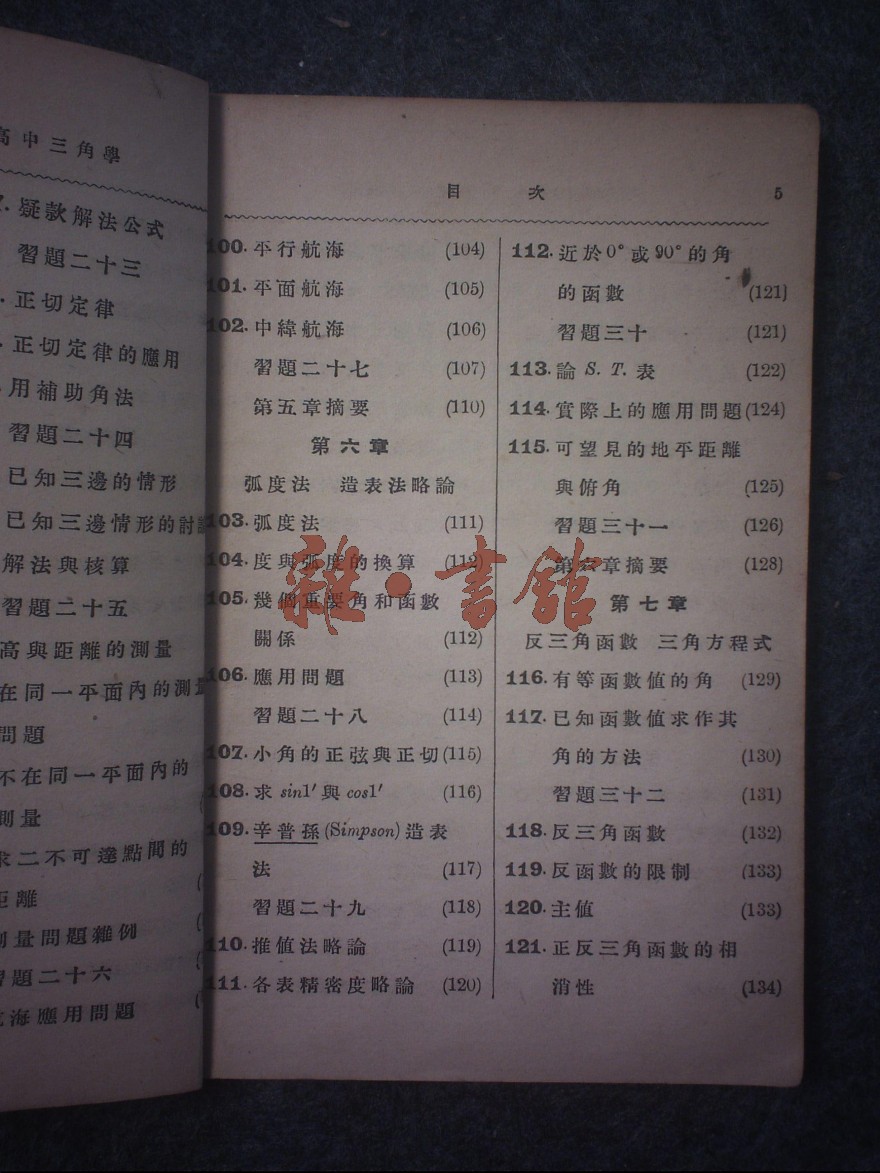 高中三角學
疑款解法公式
習題二十三
正切定律
正切定律的應用
用補助角法
習題二十四
已知三邊的情形
已知三邊情形的討
解法與核算
習題二十五
高與距離的測量
在同一平面內的測
問題
不在同一平面內的
測量
求二不可達點間的
距離
測量問題雜例
習題二十六
航海應用問題
目 次 5
100. 平行航海 (104)
101. 平面航海 (105)
102. 中緯航海 (106)
習題二十七 (107)
第五章摘要 (110)
第六章
弧度法 造表法略論
103. 弧度法 (111)
104. 度與弧度的換算 (112)
105. 幾個重要角和函數
關係 (112)
106. 應用問題 (113)
習題二十八 (114)
107. 小角的正弦與正切 (115)
108. 求 sin1′ 與 cos1′ (116)
109. 辛普孫 (Simpson) 造表
法 (117)
習題二十九 (118)
110. 推值法略論 (119)
111. 各表精密度略論 (120)
112. 近於 0° 或 90° 的角
的函數 (121)
習題三十 (121)
113. 論 S. T. 表 (122)
114. 實際上的應用問題 (124)
115. 可望見的地平距離
與俯角 (125)
習題三十一 (126)
第六章摘要 (128)
第七章
反三角函數 三角方程式
116. 有等函數值的角 (129)
117. 已知函數值求作其
角的方法 (130)
習題三十二 (131)
118. 反三角函數 (132)
119. 反函數的限制 (133)
120. 主值 (133)
121. 正反三角函數的相
消性 (134)
雜·書館